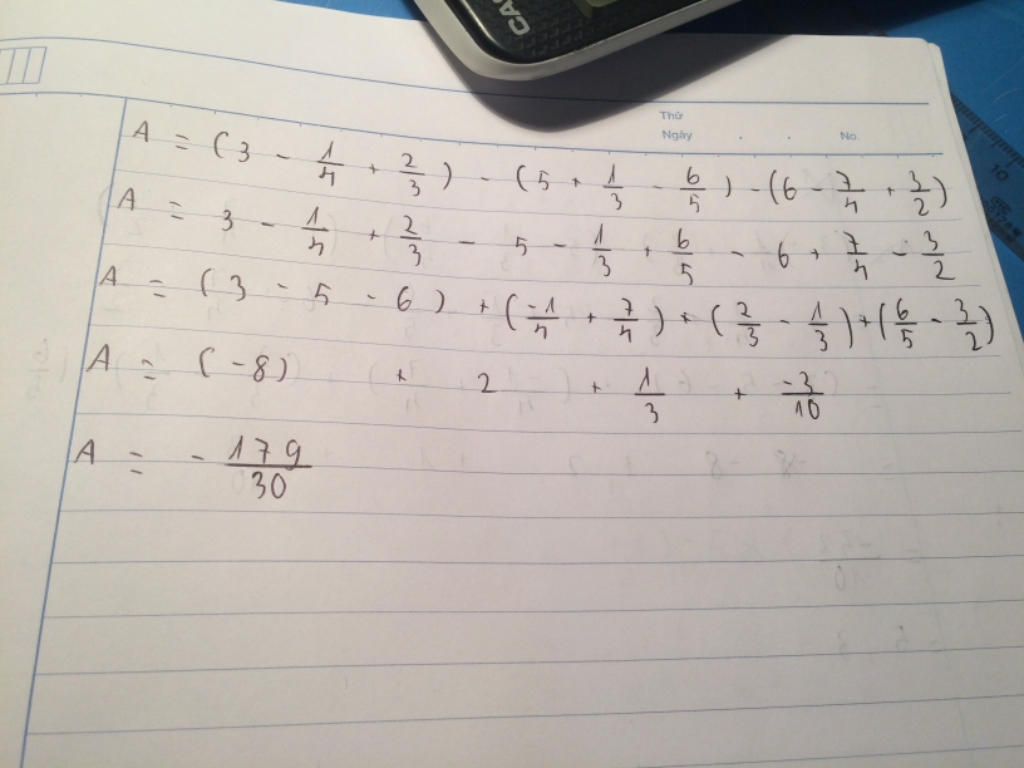 CAS
Thứ
Ngày . . No.
10
A = (3 - 1/4 + 2/3) - (5 + 1/3 - 6/5) - (6 - 7/4 + 3/2)
A = 3 - 1/4 + 2/3 - 5 - 1/3 + 6/5 - 6 + 7/4 - 3/2
A = (3 - 5 - 6) + (-1/4 + 7/4) + (2/3 - 1/3) + (6/5 - 3/2)
A = (-8) + 2 + 1/3 + -3/10
A = - 179/30